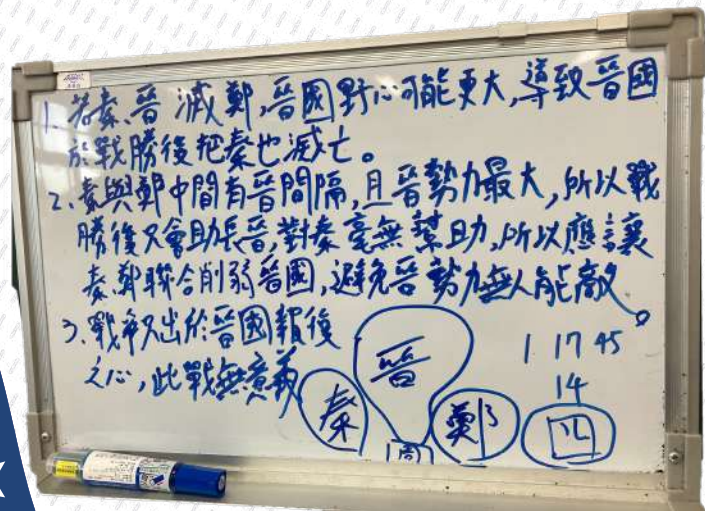 1. 若秦、晉滅鄭,晉國野心可能更大,導致晉國
於戰勝後把秦也滅亡。
2、秦與鄭中間有晉間隔,且晉勢力最大,所以戰
勝後只會助長晉,對秦毫無幫助,所以應讓
秦、鄭聯合削弱晉國,避免晉勢力無人能敵。
3、戰爭只出於晉國報復
之心,此戰無意義
晉
秦
周
鄭
1 17 45
14
四